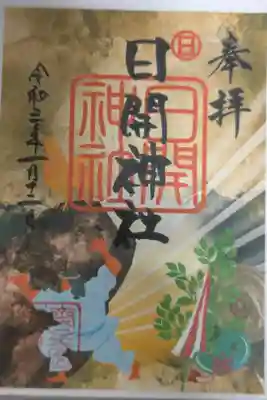 奉拝
日
日開神社
日開
神社
令和三年一月十二日